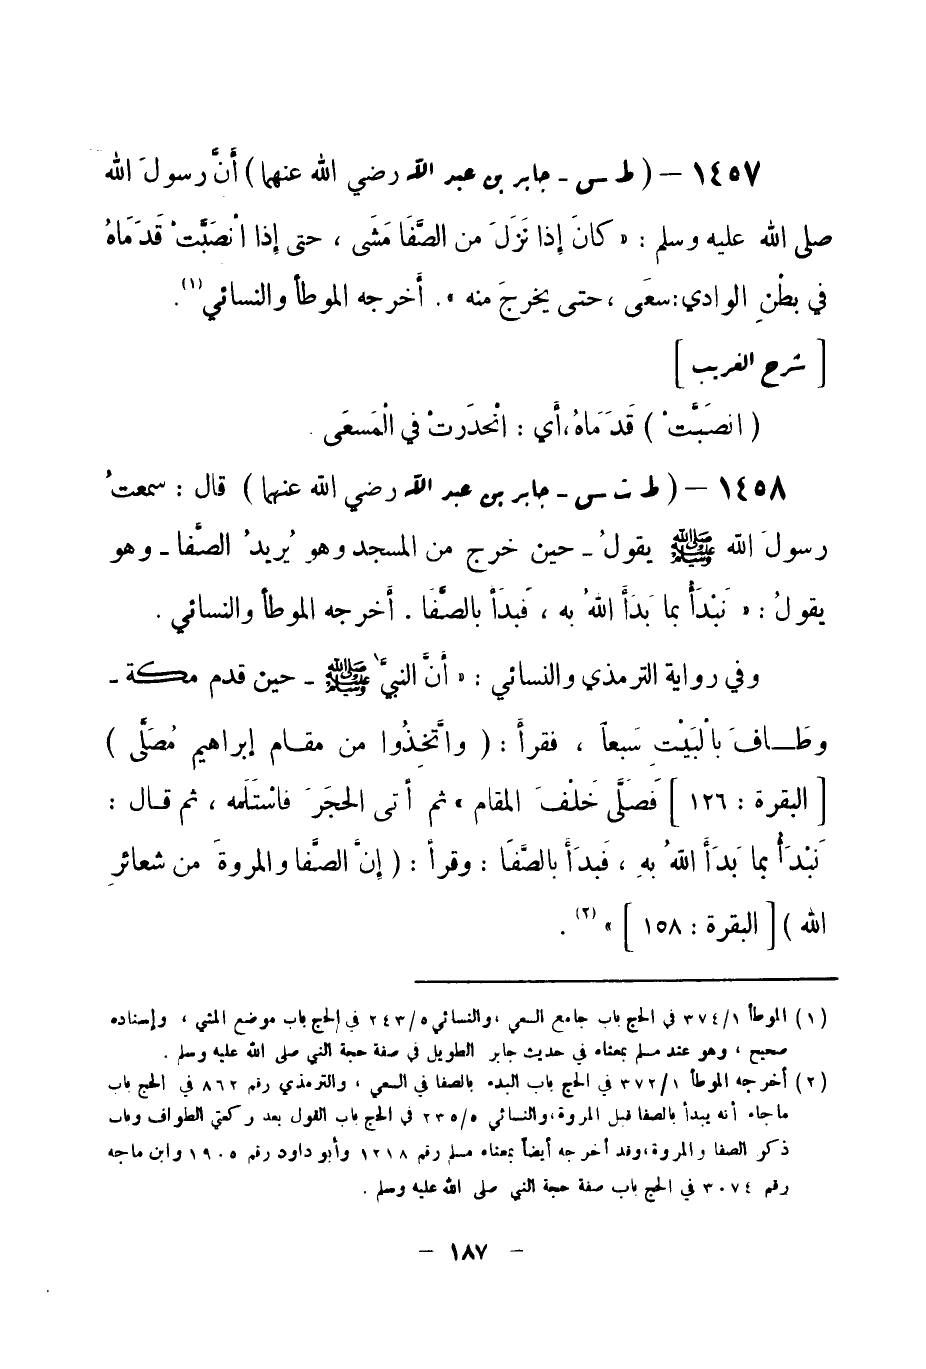 ١٤٥٧ – ( ط س - جابر بن عبد الله رضي الله عنهما ) أَنَّ رسولَ الله
صلى الله عليه وسلم : « كانَ إِذا نَزَلَ من الصَّفَا مَشَى ، حتى إِذا انْصَبَّتْ قَدَمَاهُ
في بطْنِ الوادي: سعَى ، حتى يخرجَ منه » . أخرجه الموطأ والنسائي (١).
[ شرح الغريب ]
( انصَبَّتْ ) قَدَمَاهُ ، أَي : انْحدَرتْ في الْمَسعَى .
١٤٥٨ – ( ط ت س - جابر بن عبد الله رضي الله عنهما ) قال : سمعتُ
رسولَ الله ﷺ يقولُ - حين خرج من المسجد وهو يُريدُ الصَّفا - وهو
يقولُ : « نَبْدَأُ بما بَدَأَ اللهُ به ، فَبدَأَ بالصَّفَا . أَخرجه الموطأ والنسائي .
وفي رواية الترمذي والنسائي : « أَنَّ النبيَّ ﷺ - حين قدم مكة -
وطَافَ بالْبَيْتِ سَبعاً ، فقرأَ : ( واتَّخِذُوا من مقام إبراهيم مُصَلَّى )
[ البقرة : ١٢٦ ] فَصَلَّى خَلْفَ المقام » ثم أتى الحجَرَ فاسْتَلَمه ، ثم قال :
نَبْدَأُ بما بَدَأَ اللهُ بهِ ، فَبدَأَ بالصَّفَا : وقرأَ : ( إِنَّ الصَّفا والمروةَ من شعائرِ
الله ) [ البقرة : ١٥٨ ] » (٢) .
(١) الموطأ ٣٧٤/١ في الحج باب جامع السعي ، والنسائي ٢٤٣/٥ في الحج باب موضع المشي ، وإسناده
صحيح ، وهو عند مسلم بمعناه في حديث جابر الطويل في صفة حجة النبي صلى الله عليه وسلم .
(٢) أخرجه الموطأ ٣٧٢/١ في الحج باب البدء بالصفا في السعي ، والترمذي رقم ٨٦٢ في الحج باب
ماجاء أنه يبدأ بالصفا قبل المروة، والنسائي ٢٣٥/٥ في الحج باب القول بعد ركعتي الطواف وباب
ذكر الصفا والمروة، وقد أخرجه أيضاً بمعناه مسلم رقم ١٢١٨ وأبو داود رقم ١٩٠٥ وابن ماجه
رقم ٣٠٧٤ في الحج باب صفة حجة النبي صلى الله عليه وسلم .
– ١٨٧ –